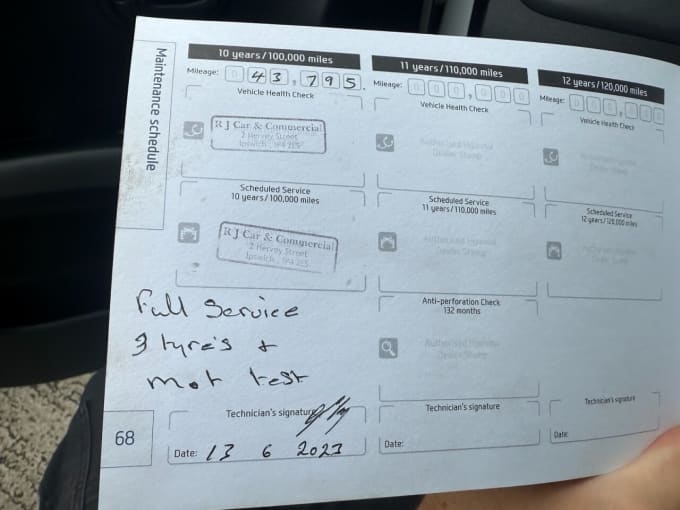 Maintenance schedule
10 years/100,000 miles
Mileage: 0 4 3 , 7 9 5 .
Vehicle Health Check
R J Car & Commercial
2 Hervey Street
Ipswich , IP4 2ES
Scheduled Service
10 years/100,000 miles
R J Car & Commercial
2 Hervey Street
Ipswich , IP4 2ES
Full Service
3 tyre's +
mot test
Technician's signature
Date: 13 6 2023
68
11 years/110,000 miles
Mileage: 0 0 0 , 0 0 0
Vehicle Health Check
Authorised Hyundai
Dealer Stamp
Scheduled Service
11 years/110,000 miles
Authorised Hyundai
Dealer Stamp
Anti-perforation Check
132 months
Authorised Hyundai
Dealer Stamp
Technician's signature
Date:
12 years/120,000 miles
Mileage: 0 0 0 , 0 0 0
Vehicle Health Check
Authorised Hyundai
Dealer Stamp
Scheduled Service
12 years/120,000 miles
Authorised Hyundai
Dealer Stamp
Technician's signature
Date: